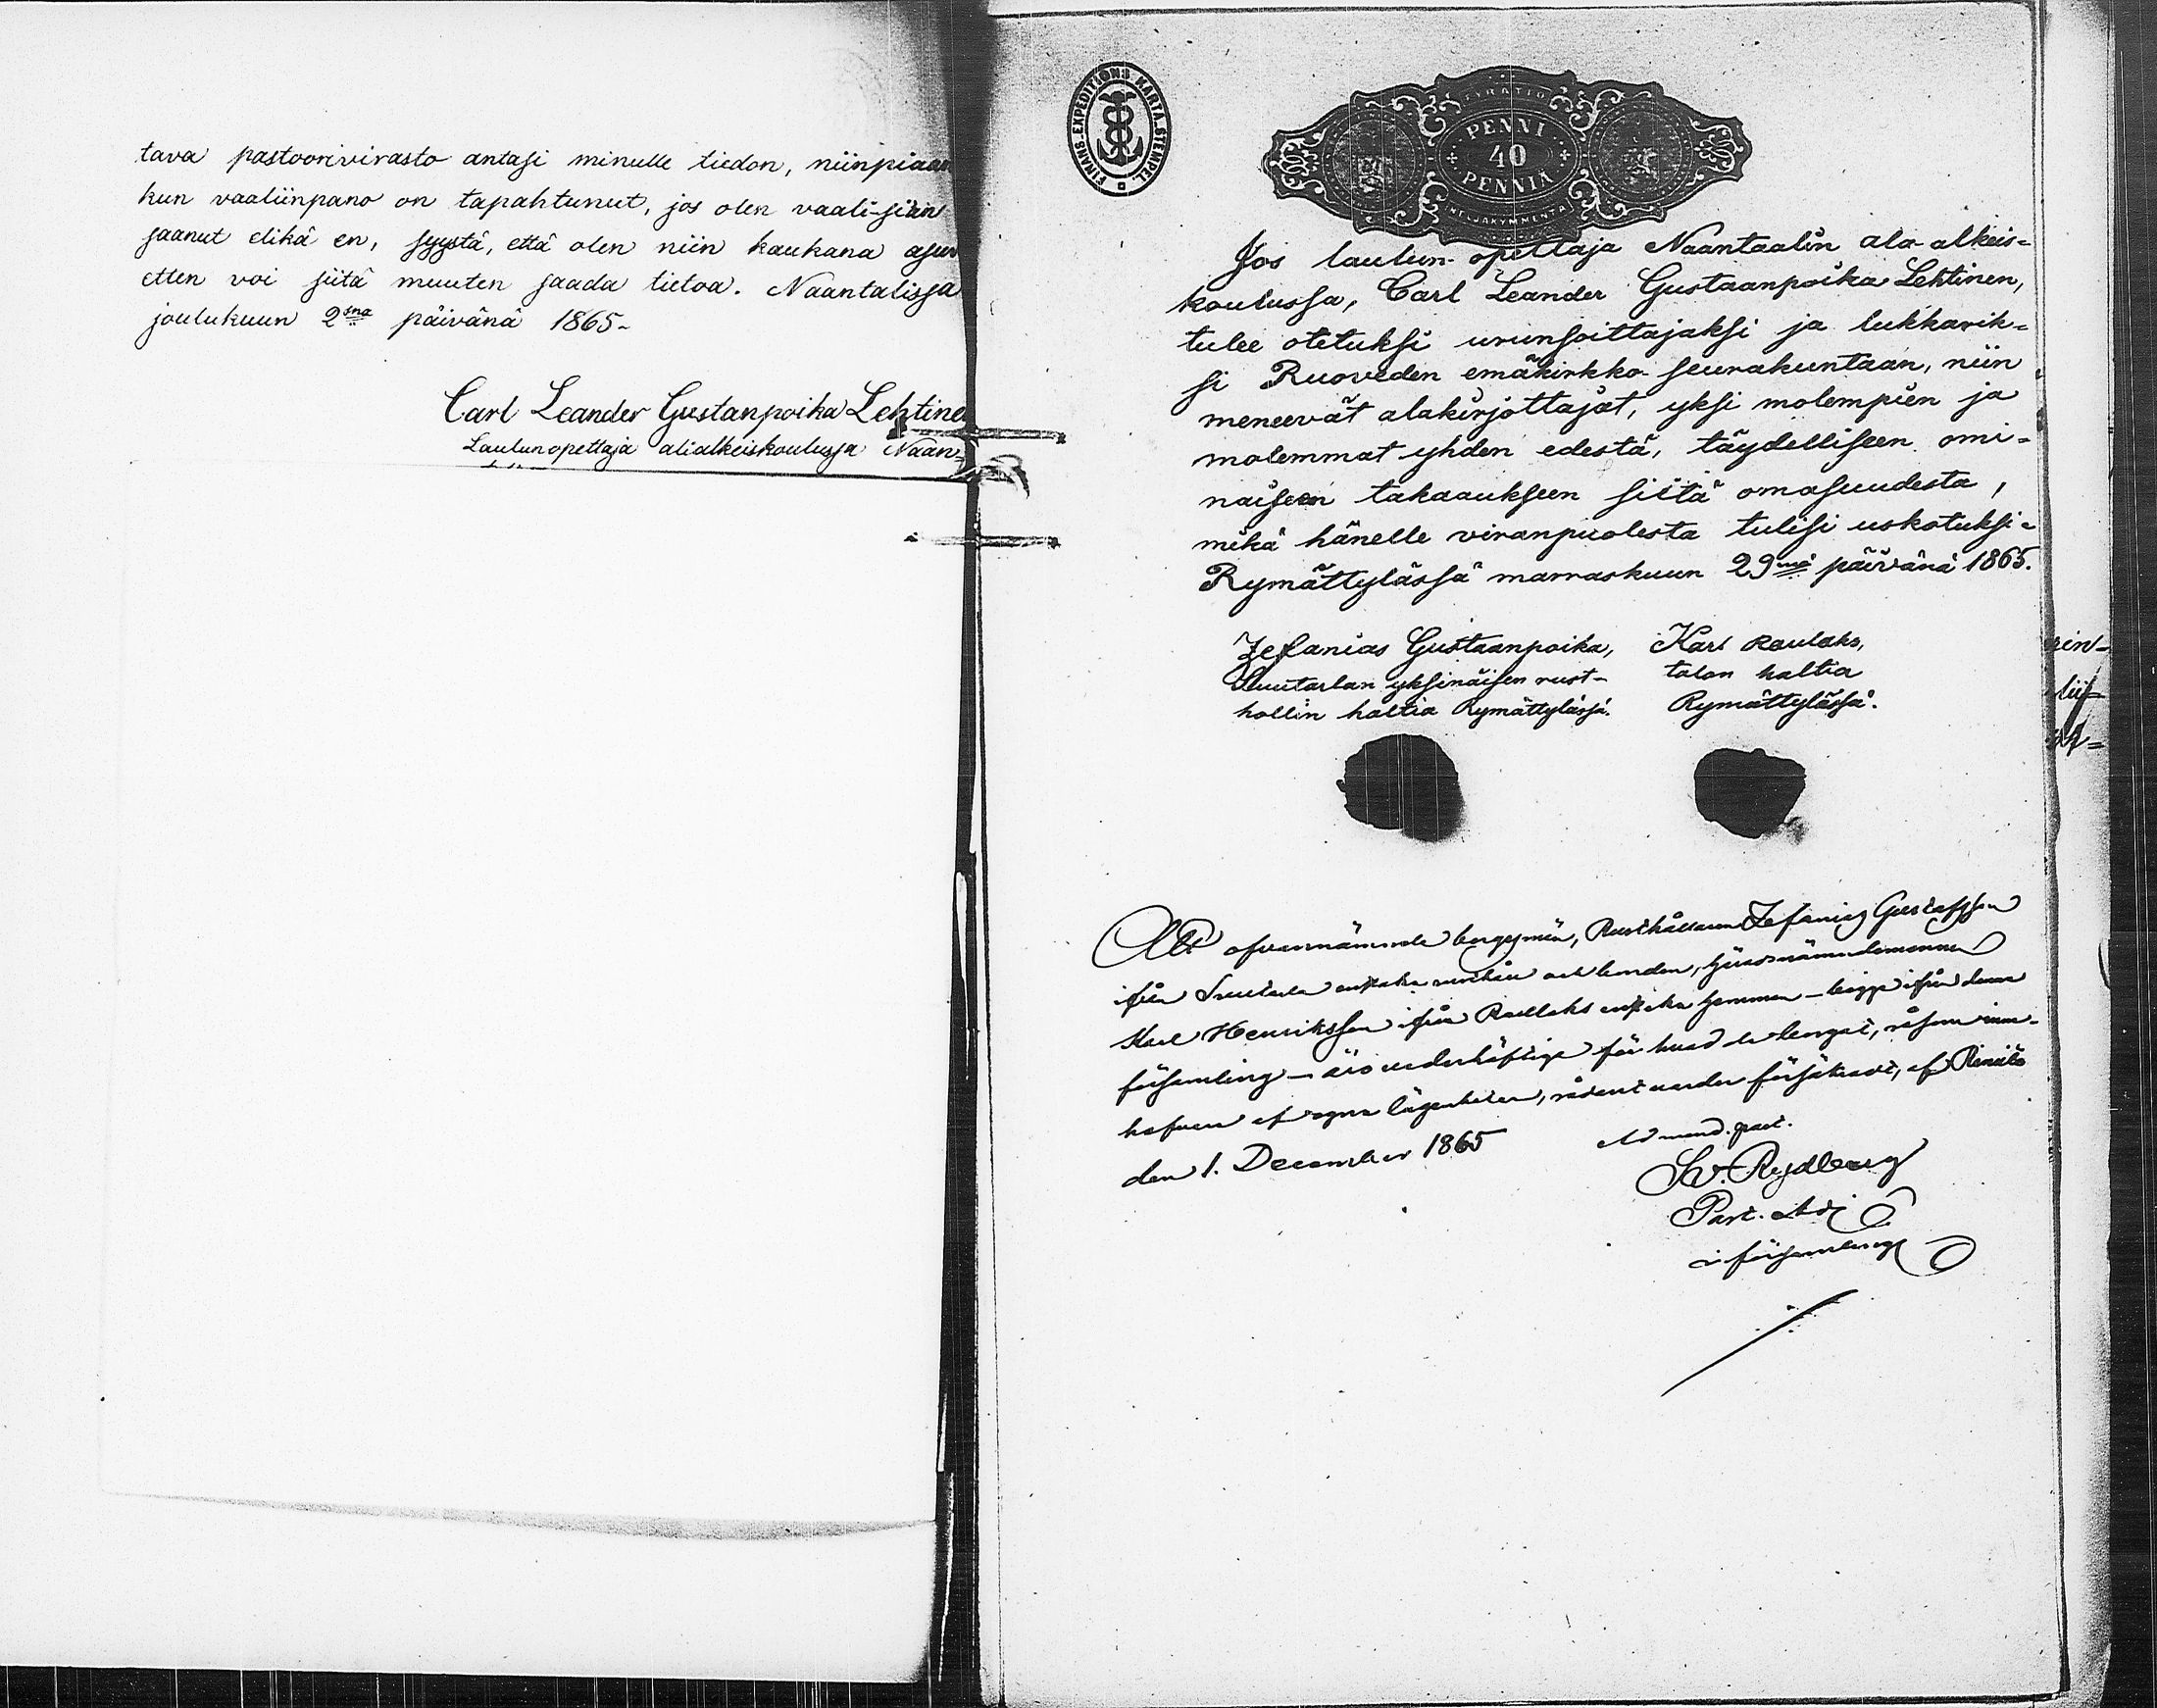 tava pastoorivirasto antasi minulle tiedon, niinpiaan
kun vaaliinpano on tapahtunut, jos olen vaali-sian
saanut elikä en, syystä, että olen niin kaukana asuv
etten voi siitä muuten saada tietoa. Naantalissa
joulukuun 2sna päivänä 1865.
Carl Leander Gustanpoika Lehtine
Laulunopettaja alialkeiskoulussa Naan-
FINANS-EXPEDITIONS KARTA.STEMPEL.
FYRATIO
PENNI
40
PENNIÄ
NELJÄKYMMENTÄ
Jos laulun-opettaja Naantaalin ala-alkeis=
koulussa, Carl Leander Gustaanpoika Lehtinen,
tulee otetuksi urunsoittajaksi ja lukkarik=
si Ruoveden emäkirkko-seurakuntaan, niin
meneevät alakirjottajat, yksi molempien ja
molemmat yhden edestä, täydelliseen omi=
naiseen takaaukseen siitä omasuudesta,
mikä hänelle viranpuolesta tulisi uskotuksi=
Rymättylässä marraskuun 29nä päivänä 1865.
Zefanias Gustaanpoika,
Suutarlan yksinäisen rust-
hollin haltia Rymättylässä.
Karl Raulaks,
talon haltia
Rymättylässä.
Att ofvannämnde borgesmän, Rusthållaren Zefanias Gustafsson
ifrån enstaka rusthåll och bonden,
Karl Henriksson ifrån Raulaks enstaka hemman – begge ifrån denna
församling – äro vederhäftige för hvad de borgat, såsom inne-
hafvare af egna lägenheter, af Rimito
den 1. December 1865
Ad mand. past.
Rydberg
Past. Adj
i församling
rin-